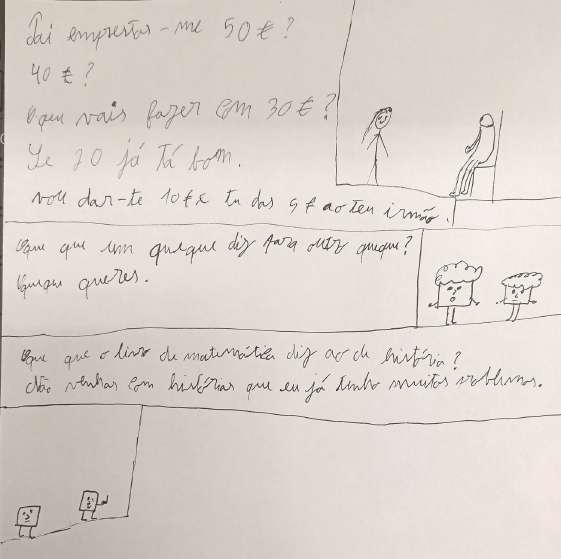 Pai emprestas-me 50€?
40€?
Oque vais fazer com 30€?
Se 20 já tá bom.
vou dar-te 10€ e tu das 5€ ao teu irmão.
Oque que um queque diz para outro queque?
queres.
Oque que o livro de matemática diz ao de história?
Não venhas com histórias que eu já tenho muitos problemas.